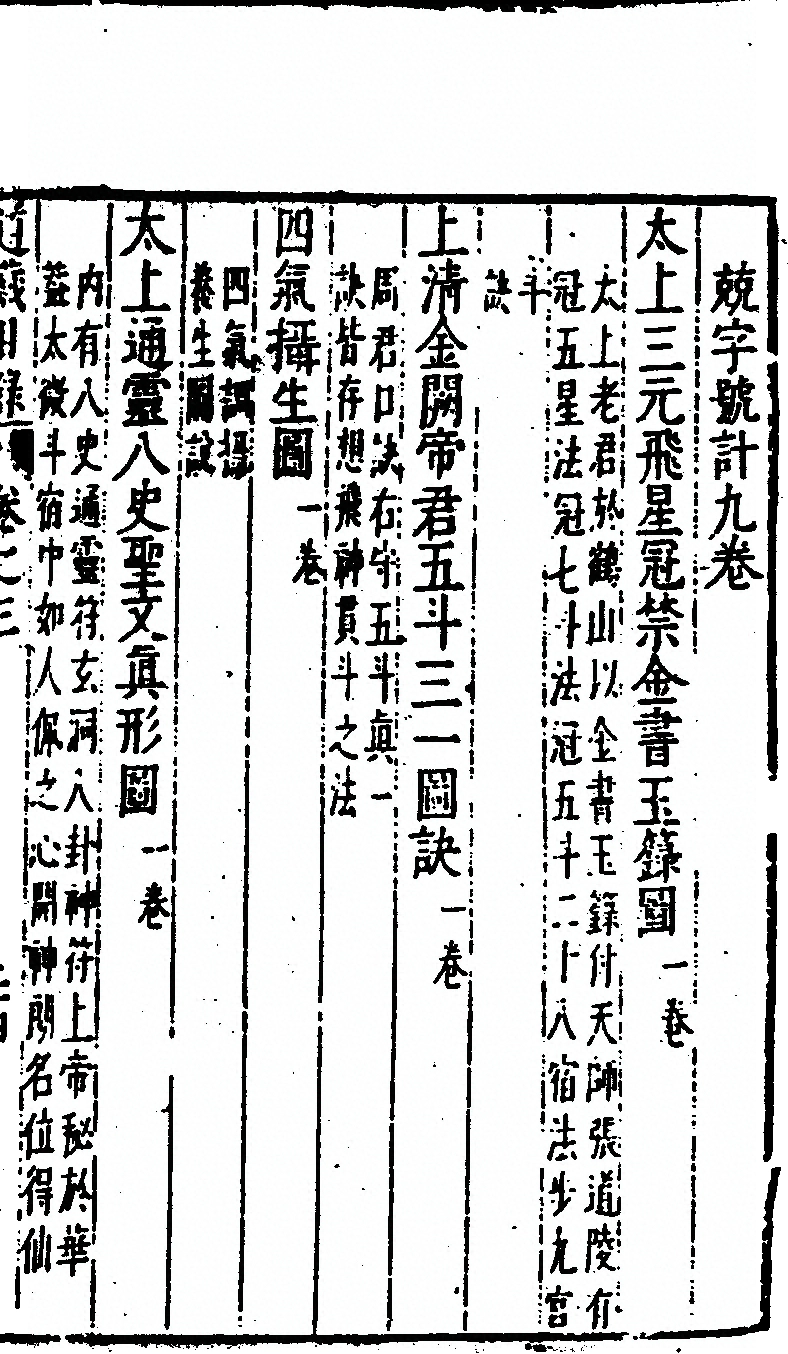 兢字號計九卷
太上三元飛星冠禁金書玉籙圖一卷
太上老君於鶴山以金書玉籙付天師張道陵有
冠五星法冠七斗法冠五斗二十八宿法步九宮
斗
訣
上清金闕帝君五斗三一圖訣一卷
周君口訣右守五斗眞一
訣皆存想飛神貫斗之法
四氣攝生圖一卷
四氣調攝
養生圖說
太上通靈八史聖文眞形圖一卷
內有八史通靈符玄洞八卦神符上帝秘於華
蓋太微斗宿中如人佩之心開神朗名位得仙